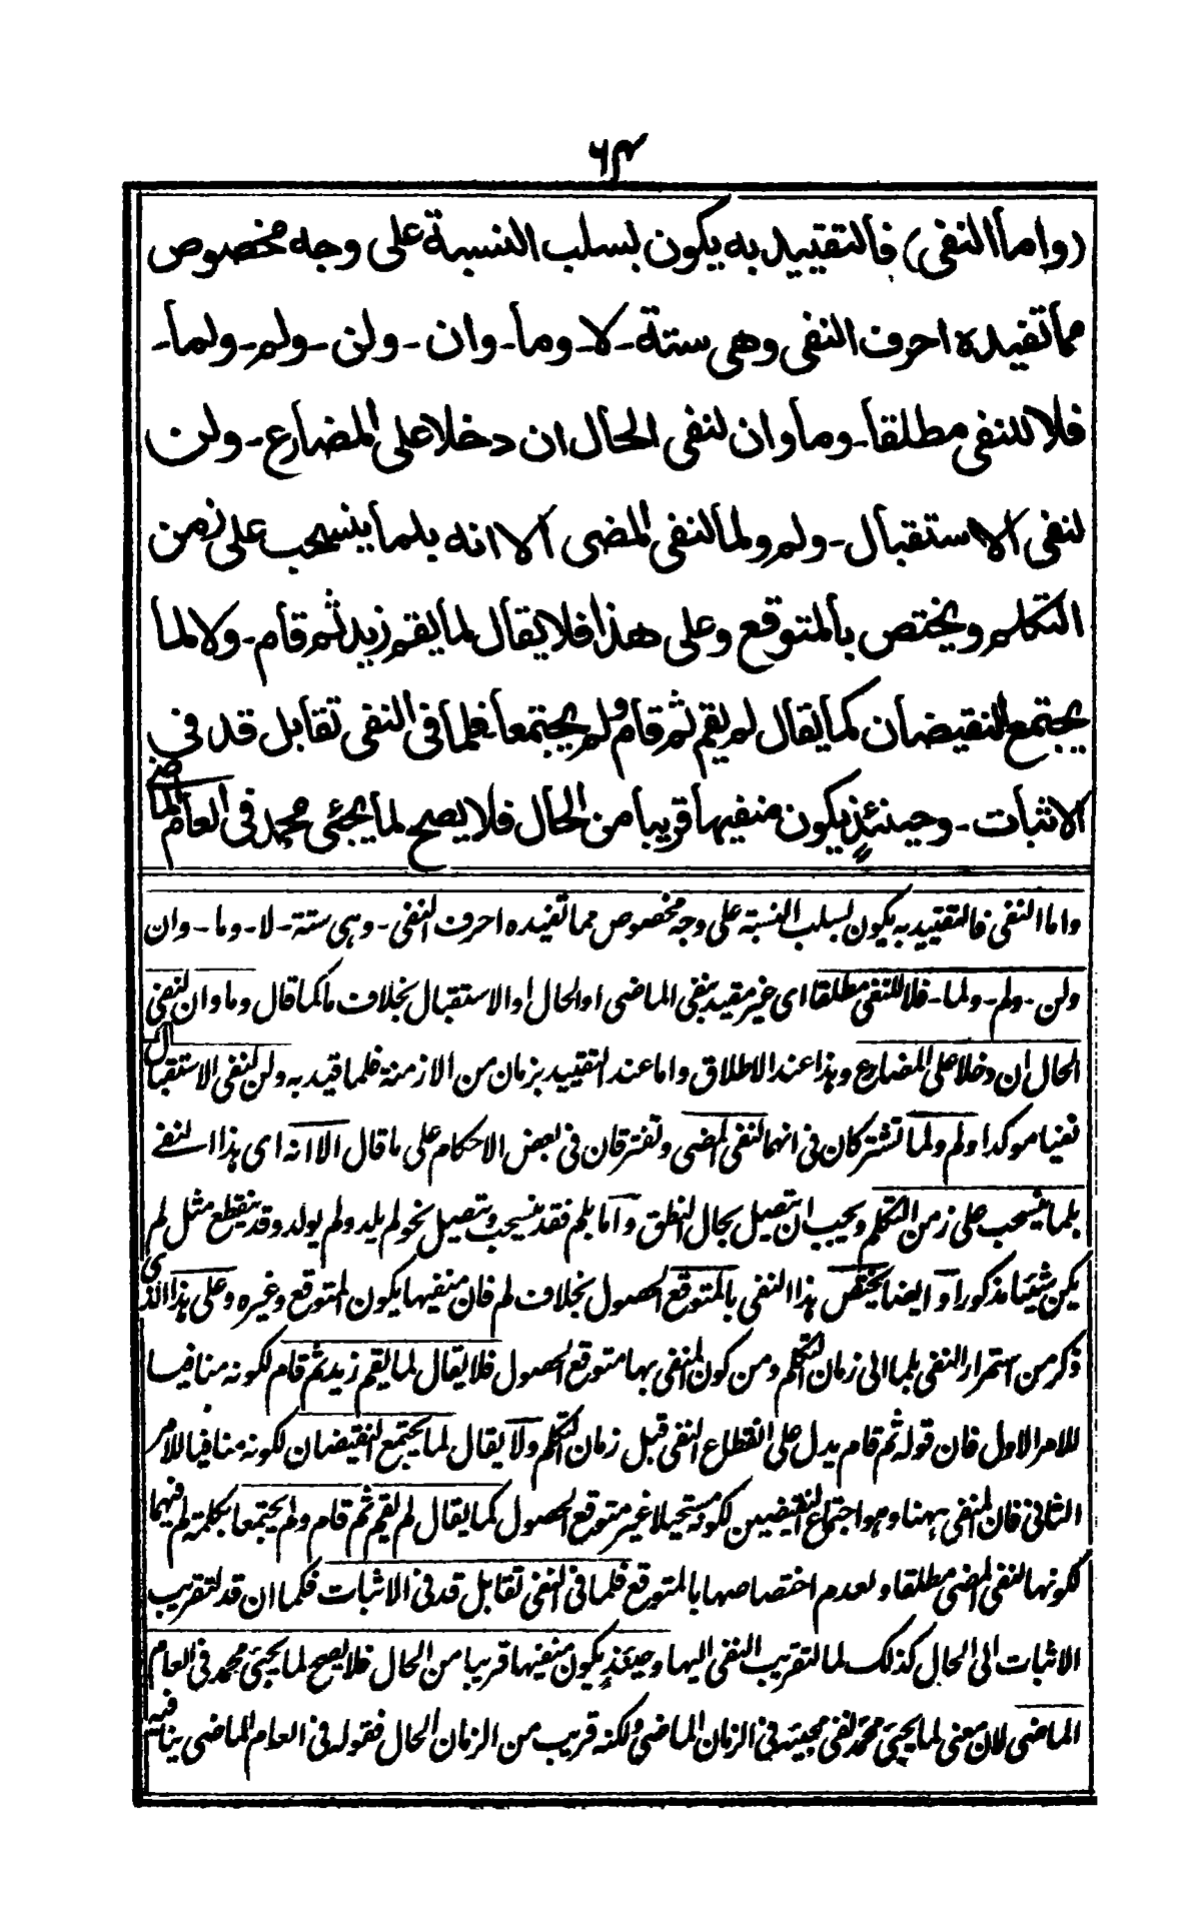 ۶۴
(واما النفى) فالتقييد به يكون لسلب النسبة على وجه مخصوص
مما تفيده احرف النفى وهى ستة - لا - وما - وان - ولن - ولم - ولما -
فلا للنفى مطلقا - وما وان لنفى الحال ان دخلا على المضارع - ولن
لنفى الاستقبال - ولم ولما لنفى المضى الا انه بلما ينسحب على زمن
التكلم ويختص بالمتوقع وعلى هذا فلا يقال لما يقم زيد ثم قام - ولا لما
يجتمع النقيضان كما يقال لم يقم ثم قام ولم يجتمعا فلما فى النفى تقابل قد فى
الاثبات - وحينئذ يكون منفيها قريبا من الحال فلا يصح لما يجئى محمد فى العام الماضى
واما النفى فالتقييد به يكون لسلب النسبة على وجه مخصوص مما تفيده احرف النفى - وهى ستة - لا - وما - وان
ولن - ولم - ولما - فلا للنفى مطلقا اى غير مقيد بنفى الماضى او الحال او الاستقبال بخلاف ما كما قال وما وان لنفى
الحال ان دخلا على المضارع وهذا عند الاطلاق واما عند التقييد بزمان من الازمنة فلما قيد به ولن لنفى الاستقبال
نفيا موكدا ولم ولما تشتركان فى انهما لنفى المضى وتفترقان فى بعض الاحكام على ما قال الا انه اى هذا النفے
بلما ينسحب على زمن التكلم ويجب ان تتصل بحال النطق واما بلم فقد ينسحب ويتصل نحو لم يلد ولم يولد وقد ينقطع مثل لم
يكن شيئا مذكورا و ايضا يختص هذا النفى بالمتوقع الحصول بخلاف لم فان منفيها يكون المتوقع وغيره وعلى هذا الذى
ذكر من استمرار النفى بلما الى زمان التكلم ومن كون المنفى بها متوقع الحصول فلا يقال لما يقم زيد ثم قام لكونه منافيا
للامر الاول فان قوله ثم قام يدل على انقطاع النفى قبل زمان التكلم ولا يقال لما يجتمع النقيضان لكونه منافيا للامر
الثانى فان المنفى ههنا وهو اجتماع النقيضين لكونه مستحيلا غير متوقع الحصول كما يقال لم يقم ثم قام ولم يجتمعا بكلمة لم فيهما
لكونها لنفى المضى مطلقا ولعدم اختصاصها بالمتوقع فلما فى النفى تقابل قد فى الاثبات فكما ان قد لتقريب
الاثبات الى الحال كذلك لما لتقريب النفى اليها وحينئذ يكون منفيها قريبا من الحال فلا يصح لما يجئى محمد فى العام
الماضى لان معنى لما يجئى محمد نفى مجيئه فى الزمان الماضى ولكنه قريب من الزمان الحال فقوله فى العام الماضى ينافيه